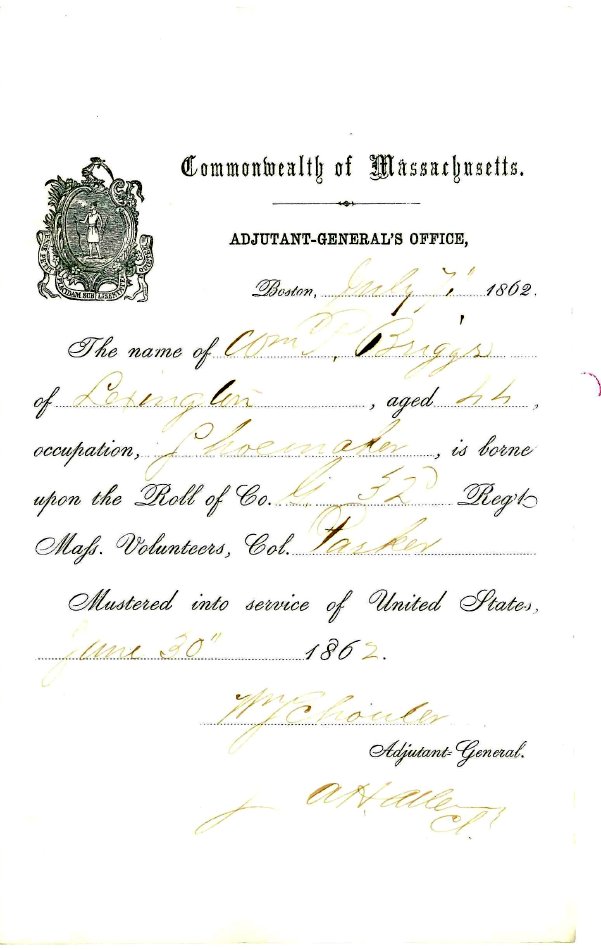 Commonwealth of Massachusetts.
ADJUTANT-GENERAL'S OFFICE,
Boston, July 7" 1862.
The name of P. Briggs
of Lexington, aged 44,
occupation, Shoemaker, is borne
upon the Roll of Co. G. 32d Reg't
Mass. Volunteers, Col. Parker
Mustered into service of United States,
June 30" 1862.
Wm Schouler
Adjutant-General.